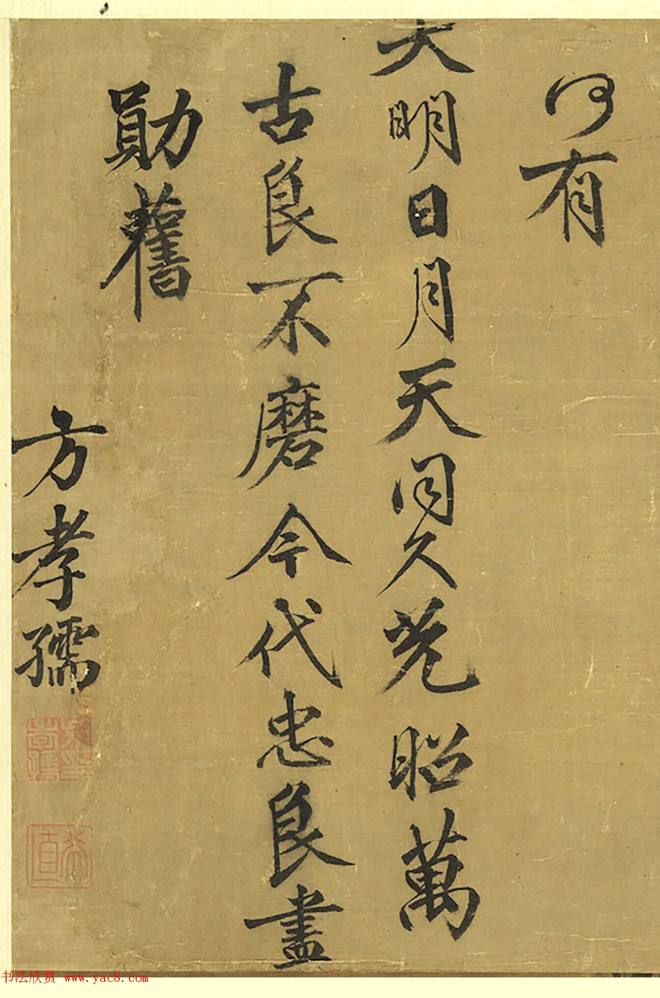 何有
大明日月天同久光昭萬
古良不磨今代忠良盡
勛舊
方孝孺
书法欣赏 www.yac8.com